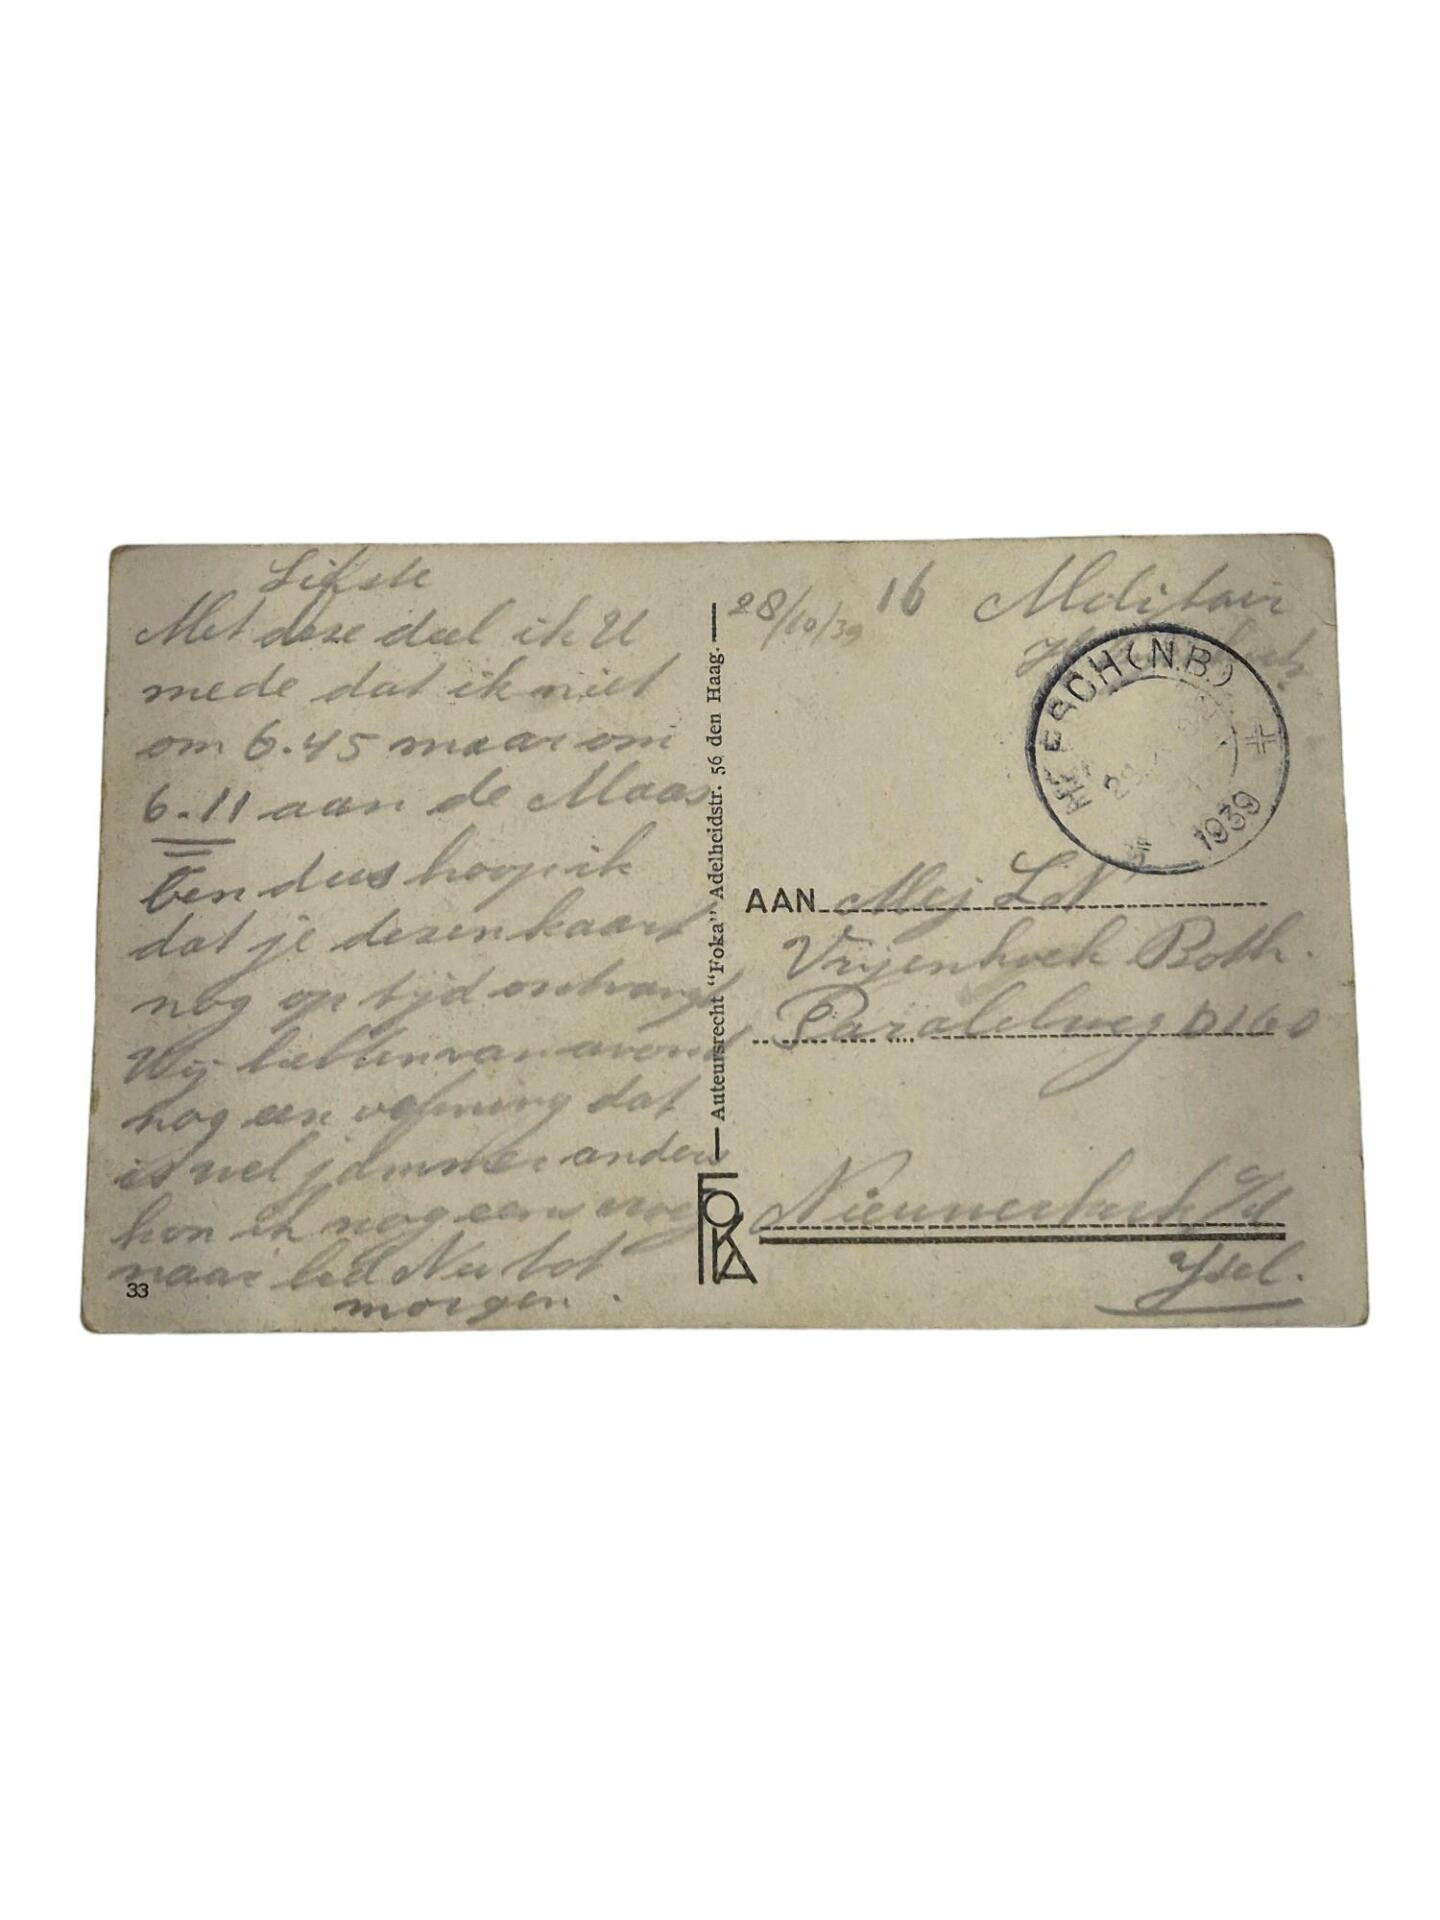 Lifste
Met deze deel ik U
mede dat ik niet
om 6.45 maar om
6.11 aan de Maas
ben dus hoop ik
dat je dezen kaart
nog op tijd ontvangt
Wij hebben van avond
nog een oefening dat
is wel jammer anders
kon ik nog eens vroeg
naar bed Nu tot
morgen.
33
Auteursrecht "Foka" Adelheidstr. 56 den Haag.
FOKA
28/10/39 16 Militair
HEESCH (N.B.)
1939
AAN Mej L N
Vrijenhoek Both.
Paralelweg D160
Nieuwerkerk a/d
Ijsel.